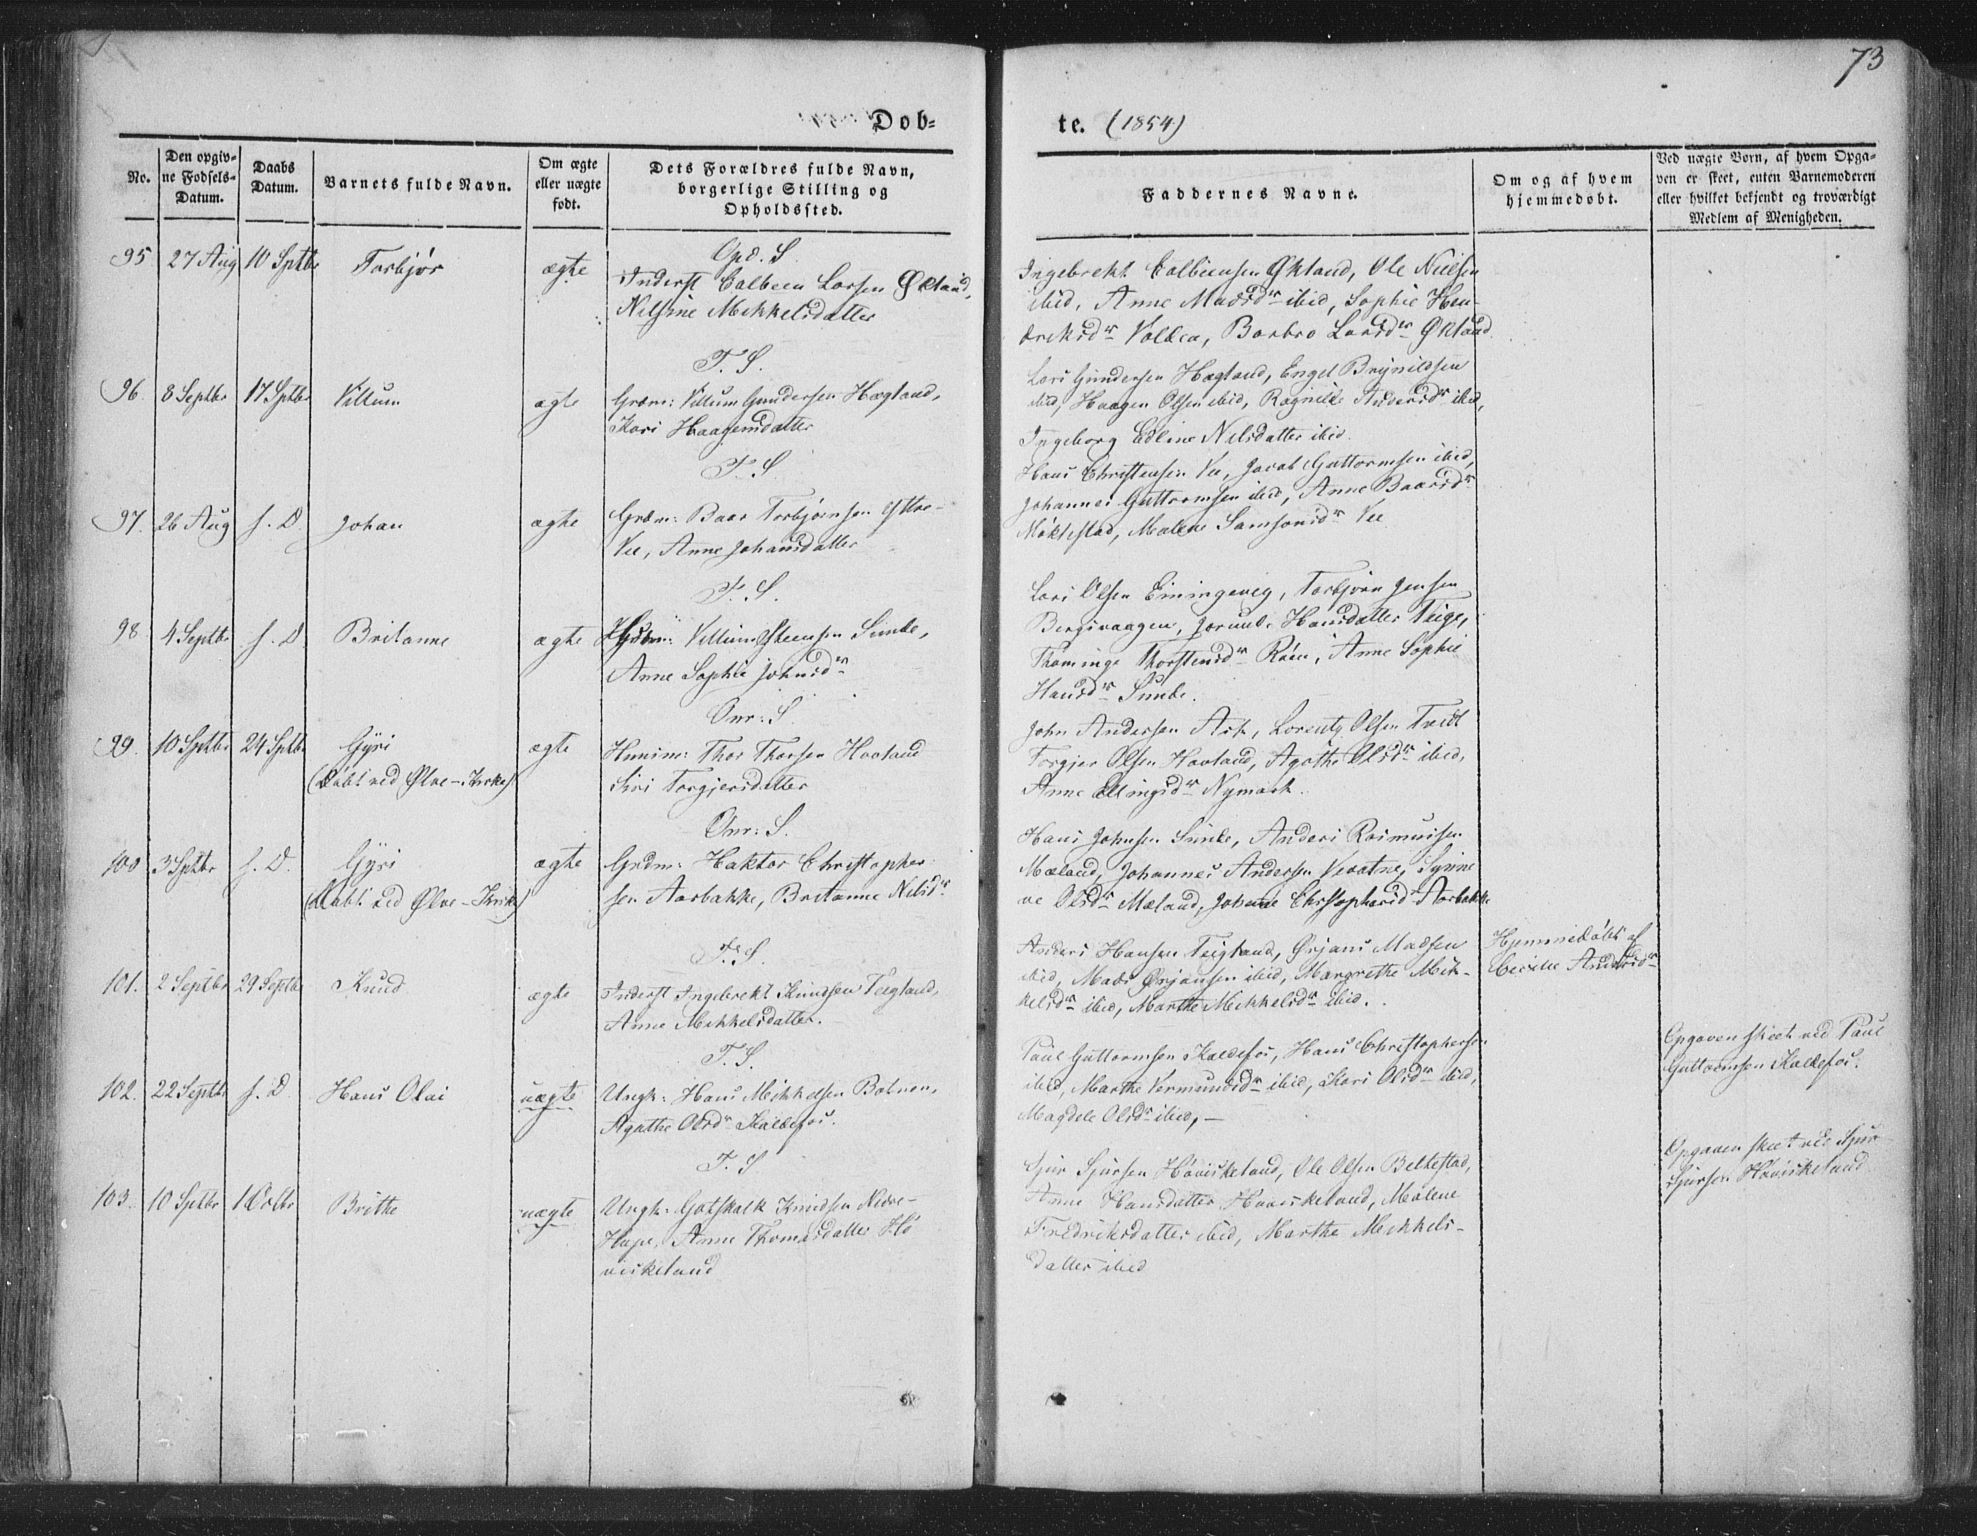 73
Dob=
te. (1854)
No.
Den opgiv=
ne Fødsels=
Datum.
Daabs
Datum.
Barnets fulde Navn.
Om ægte
eller uægte
født.
Dets Forældres fulde Navn,
borgerlige Stilling og
Opholdssted.
Faddernes Navne.
Om og af hvem
hjemmedøbt.
Ved uægte Børn, af hvem Opga=
ven er skeet, enten Barnemoderen
eller hvilket bekjendt og troværdigt
Medlem af Menigheden.
95 27 Aug 10 Sptbr Torbjør ægte
Opd. S.
Inderst Colbeen Larsen Økland,
Nilsine Mikkelsdatter
Ingebrekt Colbeensen Økland, Ole Nielsen
ibid, Anne Madsdr ibid, Sophie Hen-
driksdr Valden, Barbro Larsdr Økland
96. 8 Septbr 17 Sptbr Villum ægte
T. S.
Grdm: Villum Gundersen Hægland,
Kari Haagensdatter
Lars Gundersen Hægland, Engel Brynildsen
ibid, Haagen Olsen ibid, Ragnilde Andersdr ibid,
Ingeborg Edline Nilsdatter ibid.
97. 26 Aug s. D Johan ægte
T. S.
Grdm: Baar Torbjørnsen Østre-
Vee, Anne Johansdatter
Hans Christensen Vee, Jacob Guttormsen ibid,
Johannes Guttormsen ibid, Anne Baarsdr
Møklestad, Malene Samsonsdr Vee
98 4 Septbr s. D Britanne ægte
T. S.
Villum Østensen Sunde,
Anne Sophie Johnsdr
Lars Olsen Emingevig, Torbjørn Jensen
Bergsvaagen, Jorund. Hansdatter Teige,
Thominge Thorstensdr Røen, Anne Sophie
Hansdr Sunde.
99. 10 Sptbr 24 Sptbr Gyri ægte
(Døbt ved Ølve-Kirke)
Onr: S.
Husm: Thor Thorsen Hovland
Siri Torgjersdatter
John Andersen Ark, Lorentz Olsen Tvedt
Torgjer Olsen Hovland, Agathe Olsdr ibid,
Anne Ellingsdr Nymark.
100 3 Sptbr s. D. Gyri ægte
(Døbt ved Ølve-Kirke)
Onr: S.
Grdm: Haktor Christopher-
sen Aarbakke, Britanne Nilsdr
Hans Johnsen Sunde, Anders Rasmussen
Mæland, Johannes Andersen Vevatne, Synne
ve Olsdr Mæland, Johanne Christophersdr Aarbakke
101. 2 Septbr 29 Septbr Knud ægte
T. S.
Inderst Ingebrekt Knudsen Teigland,
Anna Mikkelsdatter.
Anders Hansen Teigland, Ørjans Madsen
ibid, Mads Ørjansen ibid, Margrethe Mik-
kelsdr ibid, Marthe Mikkelsdr ibid.
Hjemmedøbt af
Cecilie Andersdr
102. 22 Septbr s. D Hans Olai uægte
T. S.
Ungk: Hans Mikkelsen Botnen,
Agathe Olsdr Kaldefos.
Paul Guttormsen Kaldefos, Hans Christophersen
ibid, Marthe Vermundsdr ibid, Kari Olsdr ibid,
Magdele Olsdr ibid, -
Opgaven skeet ved Paul
Guttormsen Kaldefos.
103. 10 Sptbr 1 Octbr Brithe uægte
T. S
Ungk: Gotskalk Knudsen Nedre-
Hage, Anna Thomasdatter Hø
viskeland
Sjur Sjursen Høviskeland, Ole Olsen Beltestad,
Anne Hansdatter Høviskeland, Malene
Fredriksdatter ibid, Marthe Mikkels-
datter ibid
Opgaven skeet ved Sjur
Sjursen Høviskeland